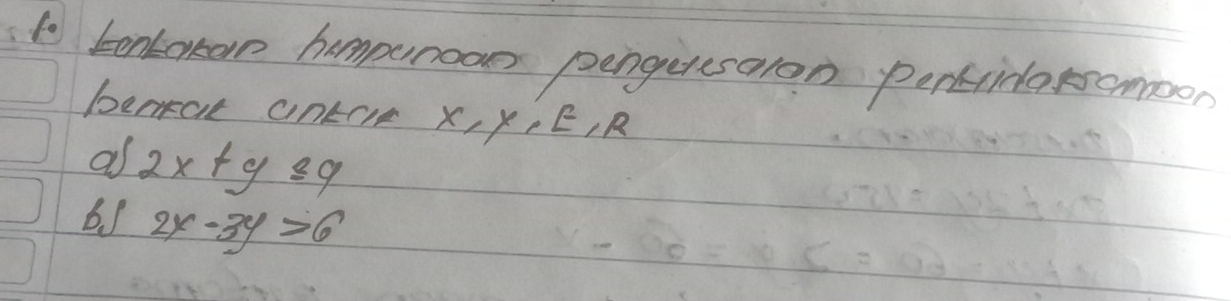 1. tentukan himpunaan pengyelesaian pertidaksamaan
berikut untuk x, y, E, R
a) 2x + y ≤ 9
b) 2x - 3y > 6